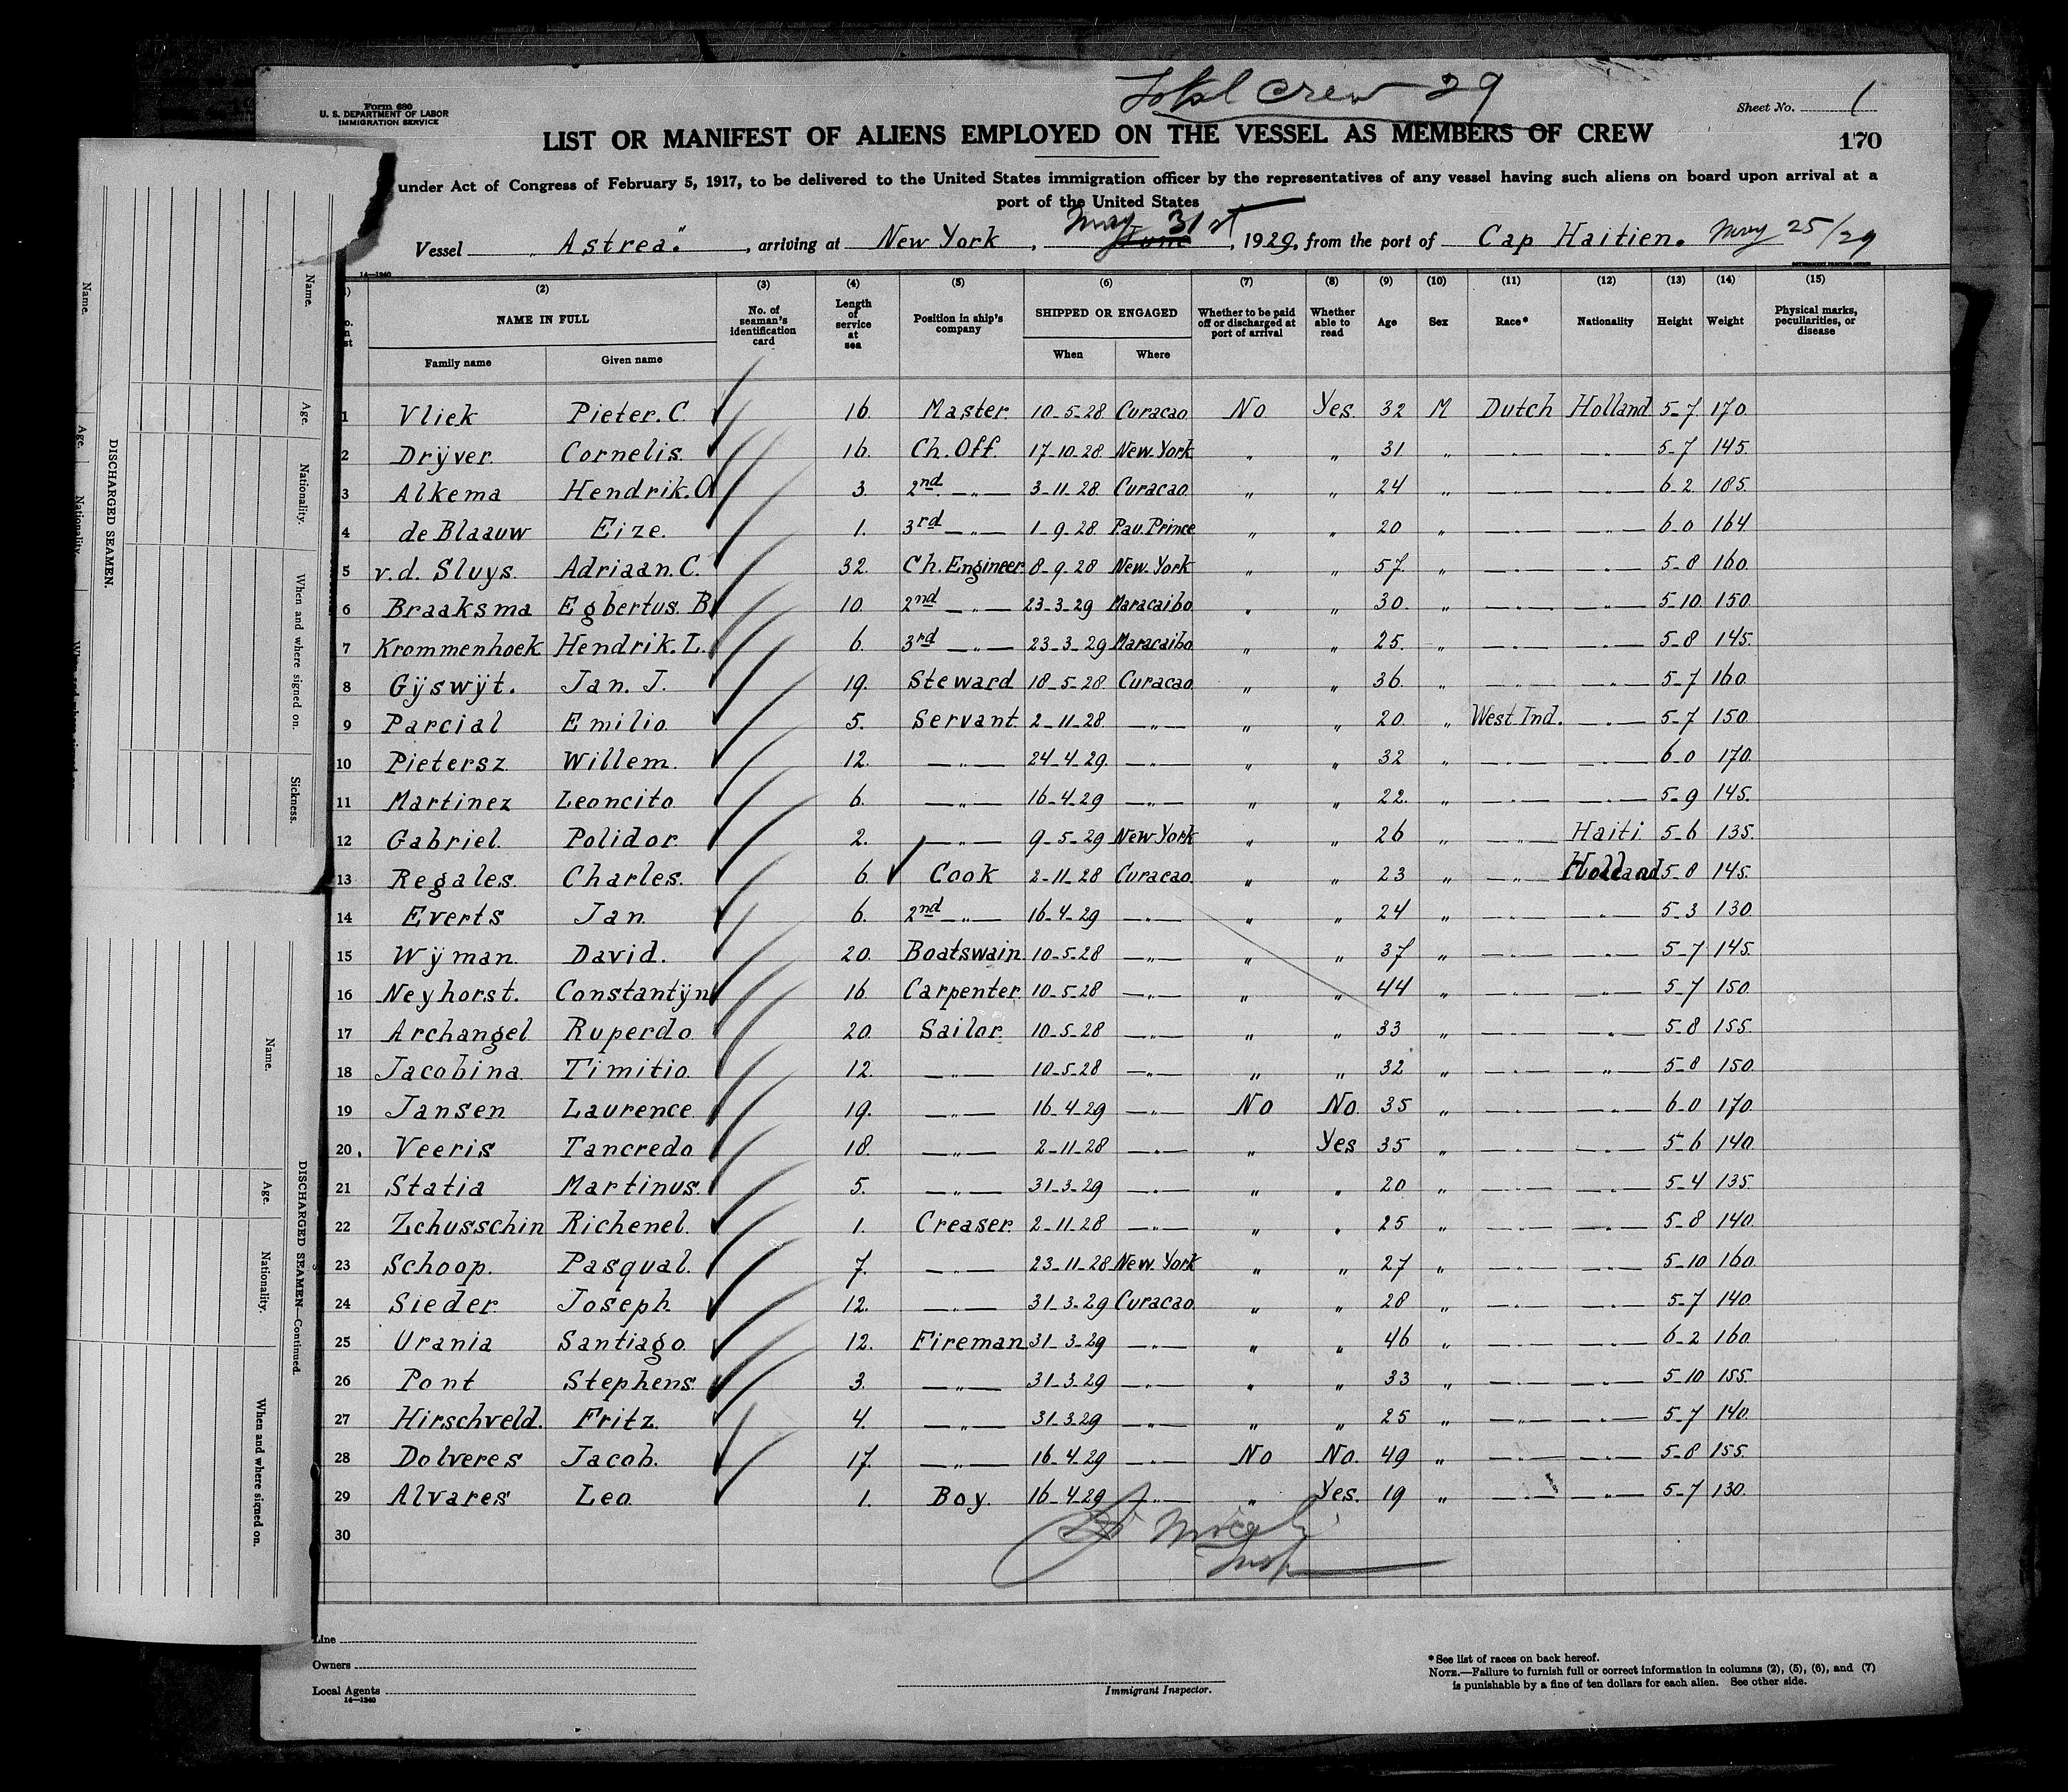 Total Crew 29
Form 680
U. S. DEPARTMENT OF LABOR
IMMIGRATION SERVICE
Sheet No. 1
LIST OR MANIFEST OF ALIENS EMPLOYED ON THE VESSEL AS MEMBERS OF CREW
170
under Act of Congress of February 5, 1917, to be delivered to the United States immigration officer by the representatives of any vessel having such aliens on board upon arrival at a
port of the United States
Vessel "Astrea". , arriving at New York , June May 31st , 1929, from the port of Cap Haitien. May 25/29
GOVERNMENT PRINTING OFFICE
14—1240
(2) (3) (4) (5) (6) (7) (8) (9) (10) (11) (12) (13) (14) (15)
NAME IN FULL
Family name Given name
No. of seaman's identification card
Length of service at sea
Position in ship's company
SHIPPED OR ENGAGED
When Where
Whether to be paid off or discharged at port of arrival
Whether able to read
Age Sex Race* Nationality Height Weight
Physical marks, peculiarities, or disease
1 Vliek Pieter. C. 16 Master 10-5-28 Curacao No Yes. 32 M Dutch Holland 5-7 170
2 Drÿver Cornelis. 16. Ch. Off. 17-10-28 New-York " " 31 " —"— —"— 5-7 145.
3 Alkema Hendrik. O 3. 2nd —"— 3-11-28. Curacao " " 24 " —"— —"— 6-2 185.
4 de Blaauw Eize. 1. 3rd —"— 1-9-28 Pau. Prince " " 20 " —"— —"— 6-0 164
5 v.d. Sluys. Adriaan. C. 32. Ch. Engineer 8-9-28 New-York " " 57. " —"— —"— 5-8 160.
6 Braaksma Egbertus. B. 10 2nd —"— 23-3-29 Maracaibo " " 30. " —"— —"— 5-10 150.
7 Krommenhoek Hendrik. L. 6. 3rd —"— 23-3-29 Maracaibo " " 25. " —"— —"— 5-8 145.
8 Gÿswÿt. Jan. J. 19. Steward 18-5-28 Curacao " " 36. " —"— —"— 5-7 160.
9 Parcial Emilio 5. Servant 2-11-28 —"— " " 20 " West Ind. —"— 5-7 150.
10 Pietersz Willem. 12. —"— 24-4-29. —"— " " 32 " —"— —"— 6-0 170.
11 Martinez Leoncito 6. —"— 16-4-29 —"— " " 22. " —"— —"— 5-9 145.
12 Gabriel. Polidor 2. —"— 9-5-29 New-York " " 26 " —"— Haiti 5-6 135.
13 Regales. Charles. 6. Cook 2-11-28 Curacao. " " 23 " —"— Holland 5-8 145.
14 Everts Jan. 6. 2nd —"— 16-4-29 —"— " " 24 " —"— —"— 5-3 130.
15 Wÿman. David. 20. Boatswain. 10-5-28 —"— " " 37 " —"— —"— 5-7 145.
16 Neyhorst. Constantÿn 16 Carpenter 10-5-28 —"— " " 44 " —"— —"— 5-7 150.
17 Archangel Ruperdo 20. Sailor. 10-5-28 —"— " " 33 " —"— —"— 5-8 155.
18 Jacobina Timitio 12. —"— 10-5-28 —"— " " 32 " —"— —"— 5-8 150.
19 Jansen Laurence 19. —"— 16-4-29 —"— No No. 35 " —"— —"— 6-0 170.
20 Veeris Tancredo 18. —"— 2-11-28 —"— " Yes 35 " —"— —"— 5-6 140.
21 Statia Martinus. 5. —"— 31-3-29 —"— " " 20 " —"— —"— 5-4 135.
22 Zchusschin Richenel. 1. Creaser. 2-11-28 —"— " " 25 " —"— —"— 5-8 140.
23 Schoop. Pasqual. 7. —"— 23-11-28 New-York " " 27 " —"— —"— 5-10 160.
24 Sieder Joseph. 12. —"— 31-3-29 Curacao. " " 28 " —"— —"— 5-7 140.
25 Urania Santiago. 12. Fireman 31-3-29 —"— " " 46 " —"— —"— 6-2 160.
26 Pont Stephens 3. —"— 31-3-29 —"— " " 33 " —"— —"— 5-10 155.
27 Hirschveld. Fritz. 4. —"— 31-3-29 —"— " " 25 " —"— —"— 5-7 140.
28 Dolveres Jacob. 17. —"— 16-4-29 —"— No No. 49 " —"— —"— 5-8 155.
29 Alvares Leo. 1. Boy. 16-4-29 —"— " Yes. 19 " —"— —"— 5-7 130.
30
Insp
Line
Owners
Local Agents
14—1240
Immigrant Inspector.
*See list of races on back hereof.
NOTE.—Failure to furnish full or correct information in columns (2), (5), (6), and (7)
is punishable by a fine of ten dollars for each alien. See other side.
DISCHARGED SEAMEN.
Name. Age. Nationality. When and where signed on. Sickness.
Name. Age. Nationality.
DISCHARGED SEAMEN—Continued.
Name. Age. Nationality. When and where signed on.